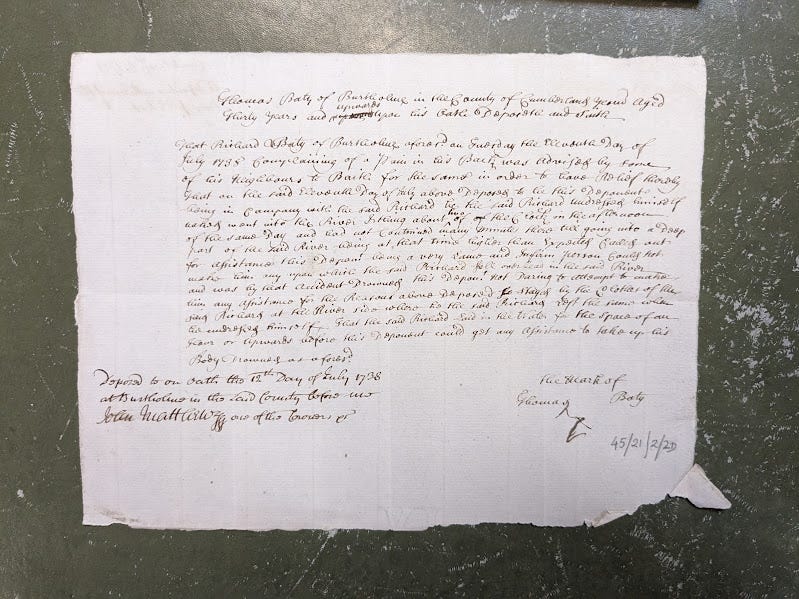 Thomas Baty of Burtholme in the County of Cumberland yeom Aged
Thirty Years and upwards upon his Oath Deposeth and Saith
That Richard Baty of Burtholme aforesd on Tuesday the Eleventh Day of
July 1738 Complaining of a Pain in his Back was Advised by some
of his Neighbours to Bath for the same in order to have Relief thereby
That on the said Eleventh Day of July above Deposed to he this Deponent
being in Company with the said Richard he the said Richard undressed himself
naked went into the River Irthing about two of the Clock in the afternoon
of the same Day and had not Continued many minutes there till going into a Deep
part of the said River being at that time higher than Expected Called out
for Assistance this Depont being a very Lame and Infirm person Could not
make him any upon which the said Richard fell over head in the said River
and was by that Accident Drowned this Depont not Daring to attempt to make
him any Assistance for the Reasons above Deposed to stayed by the Cloathes of the
said Richard at the River side where he the said Richard left the same when
he undressed himself That the said Richard Laid in the water for the space of an
hour or upwards before this Deponent could get any Assistance to take up his
Body Drowned as aforesd
Deposed to on Oath the 12th Day of July 1738
at Burtholme in the said County before me
John Matthews one of the Coroners
The Mark of
Thomas Baty
45/21/2/2D